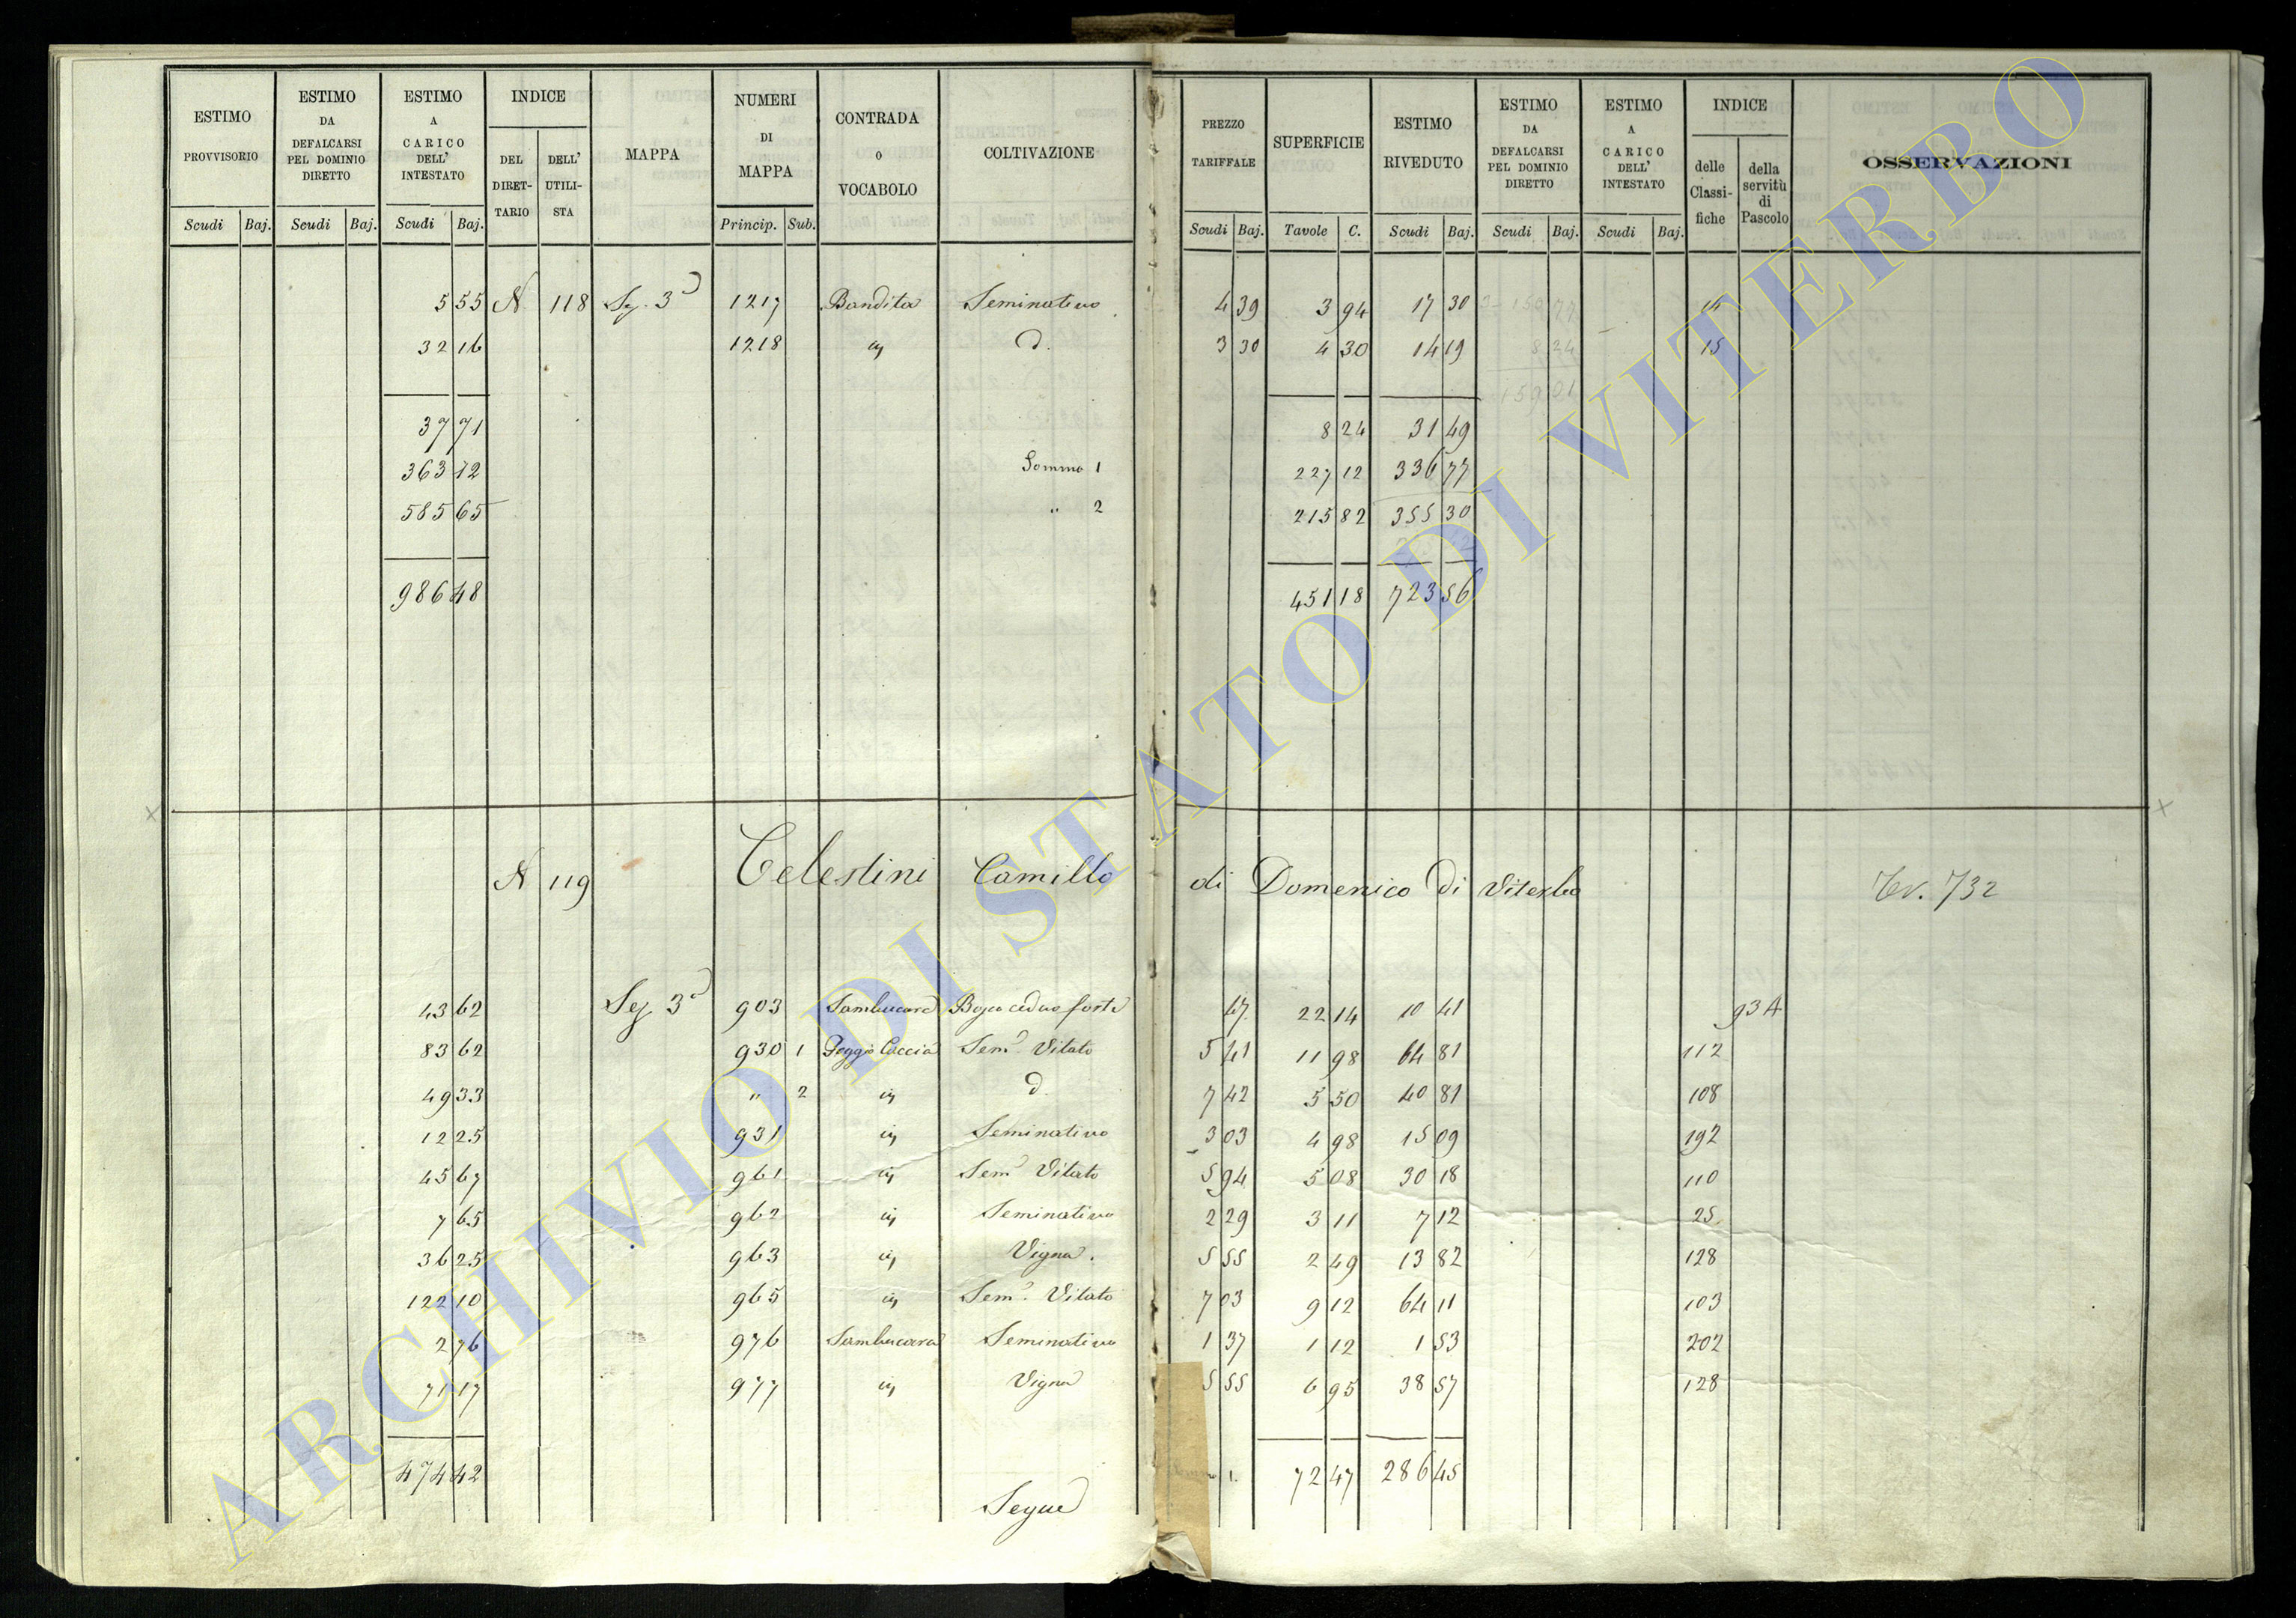 ESTIMO PROVVISORIO | ESTIMO DA DEFALCARSI PEL DOMINIO DIRETTO | ESTIMO A CARICO DELL' INTESTATO | INDICE | MAPPA | NUMERI DI MAPPA | CONTRADA O VOCABOLO | COLTIVAZIONE | PREZZO TARIFFALE | SUPERFICIE | ESTIMO RIVEDUTO | ESTIMO DA DEFALCARSI PEL DOMINIO DIRETTO | ESTIMO A CARICO DELL' INTESTATO | INDICE | OSSERVAZIONI
DEL DIRET-TARIO | DELL' UTILI-STA | delle Classi-fiche | della servitù di Pascolo
Scudi | Baj. | Scudi | Baj. | Scudi | Baj. | Princip. | Sub. | Scudi | Baj. | Tavole | C. | Scudi | Baj. | Scudi | Baj. | Scudi | Baj.
5 55 N 118 Sez. 3ª 1217 Bandita Seminativo 4 39 3 94 17 30 14
32 16 1218 id. 3 30 4 30 14 19 8 24 15
159 01
37 71 8 24 31 49
363 12 Somma 1 227 12 336 77
585 65 " 2 215 82 355 30
986 48 451 18 723 56
N 119 Celestini Camillo di Domenico di Viterbo 732
43 62 Sez. 3ª 903 Sambucara Bosco ceduo forte 47 22 14 10 41 93 A
83 62 930 1 Poggio Caccia Sem. Vitato 5 41 11 98 64 81 112
49 33 " 2 7 42 5 50 40 81 108
12 25 931 Seminativo 3 03 4 98 15 09 192
45 67 961 Sem. Vitato 5 94 5 08 30 18 110
7 65 962 Seminativo 2 29 3 11 7 12 25
36 25 963 Vigna. 5 55 2 49 13 82 128
122 10 965 Sem. Vitato 7 03 9 12 64 11 103
2 76 976 Sambucara Seminativo 1 37 1 12 1 53 202
71 17 977 Vigna 5 55 6 95 38 57 128
474 42 1. 72 47 286 45
Segue
ARCHIVIO DI STATO DI VITERBO